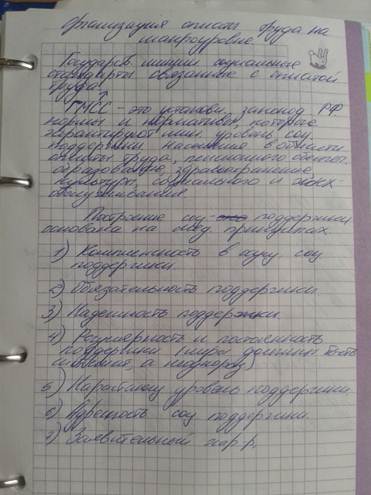 Организация оплаты труда на
макроуровне
Государств. миним. социальные
стандарты связанные с оплатой
труда:
ГМСС - это установ. законод. РФ
нормы и нормативы, которые
гарантируют мин. уровень соц.
поддержки населения в области
оплаты труда, пенсионного обеспеч.
образование, здравоохранение,
культуры, социального и
обслуживание.
Построение соц. поддержки
основана на след. принципах
1) Комплексность в соц
поддержки
2) Обязательность поддержки
3) Надежность поддержки
4) Регулярность и постоянность
поддержки (меры должны быть
а
5) Нарастающ. уровень поддержки.
6) Адресность соц поддержки.
7) Заявительный хар-р.